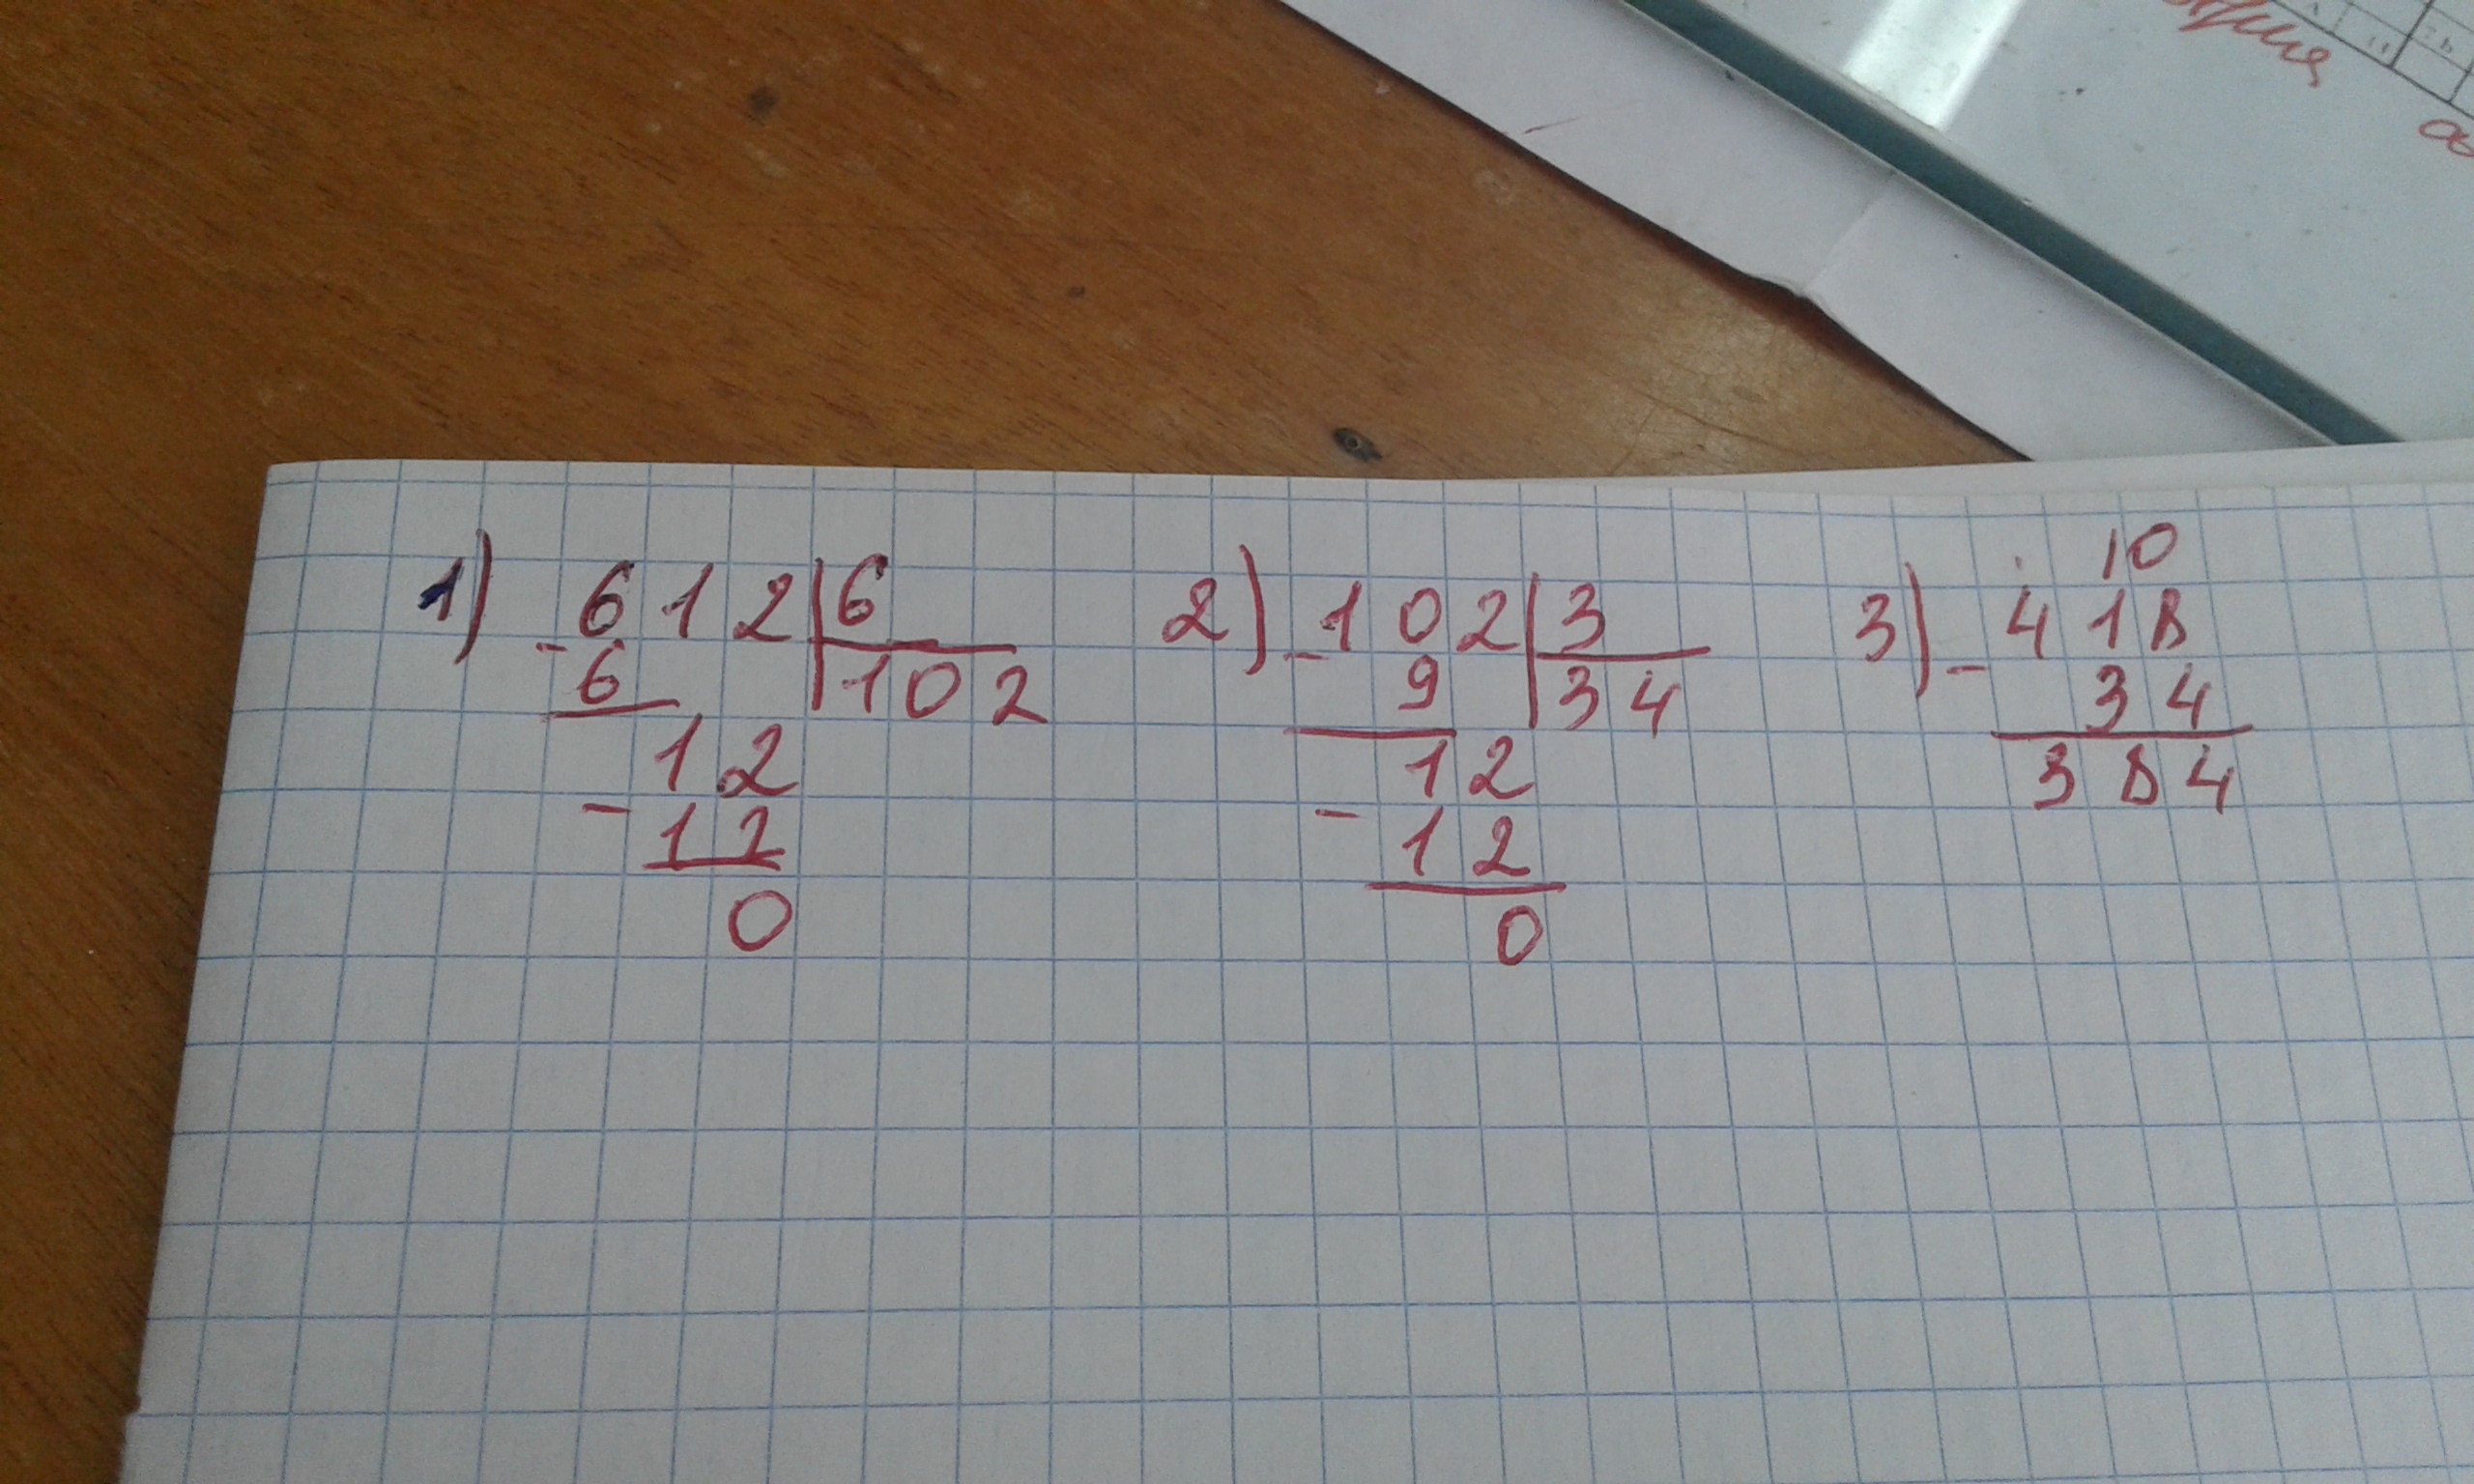 1) - 612 | 6
6 | 102
12
- 12
0
2) - 102 | 3
9 | 34
12
- 12
0
10
3) - 418
34
384